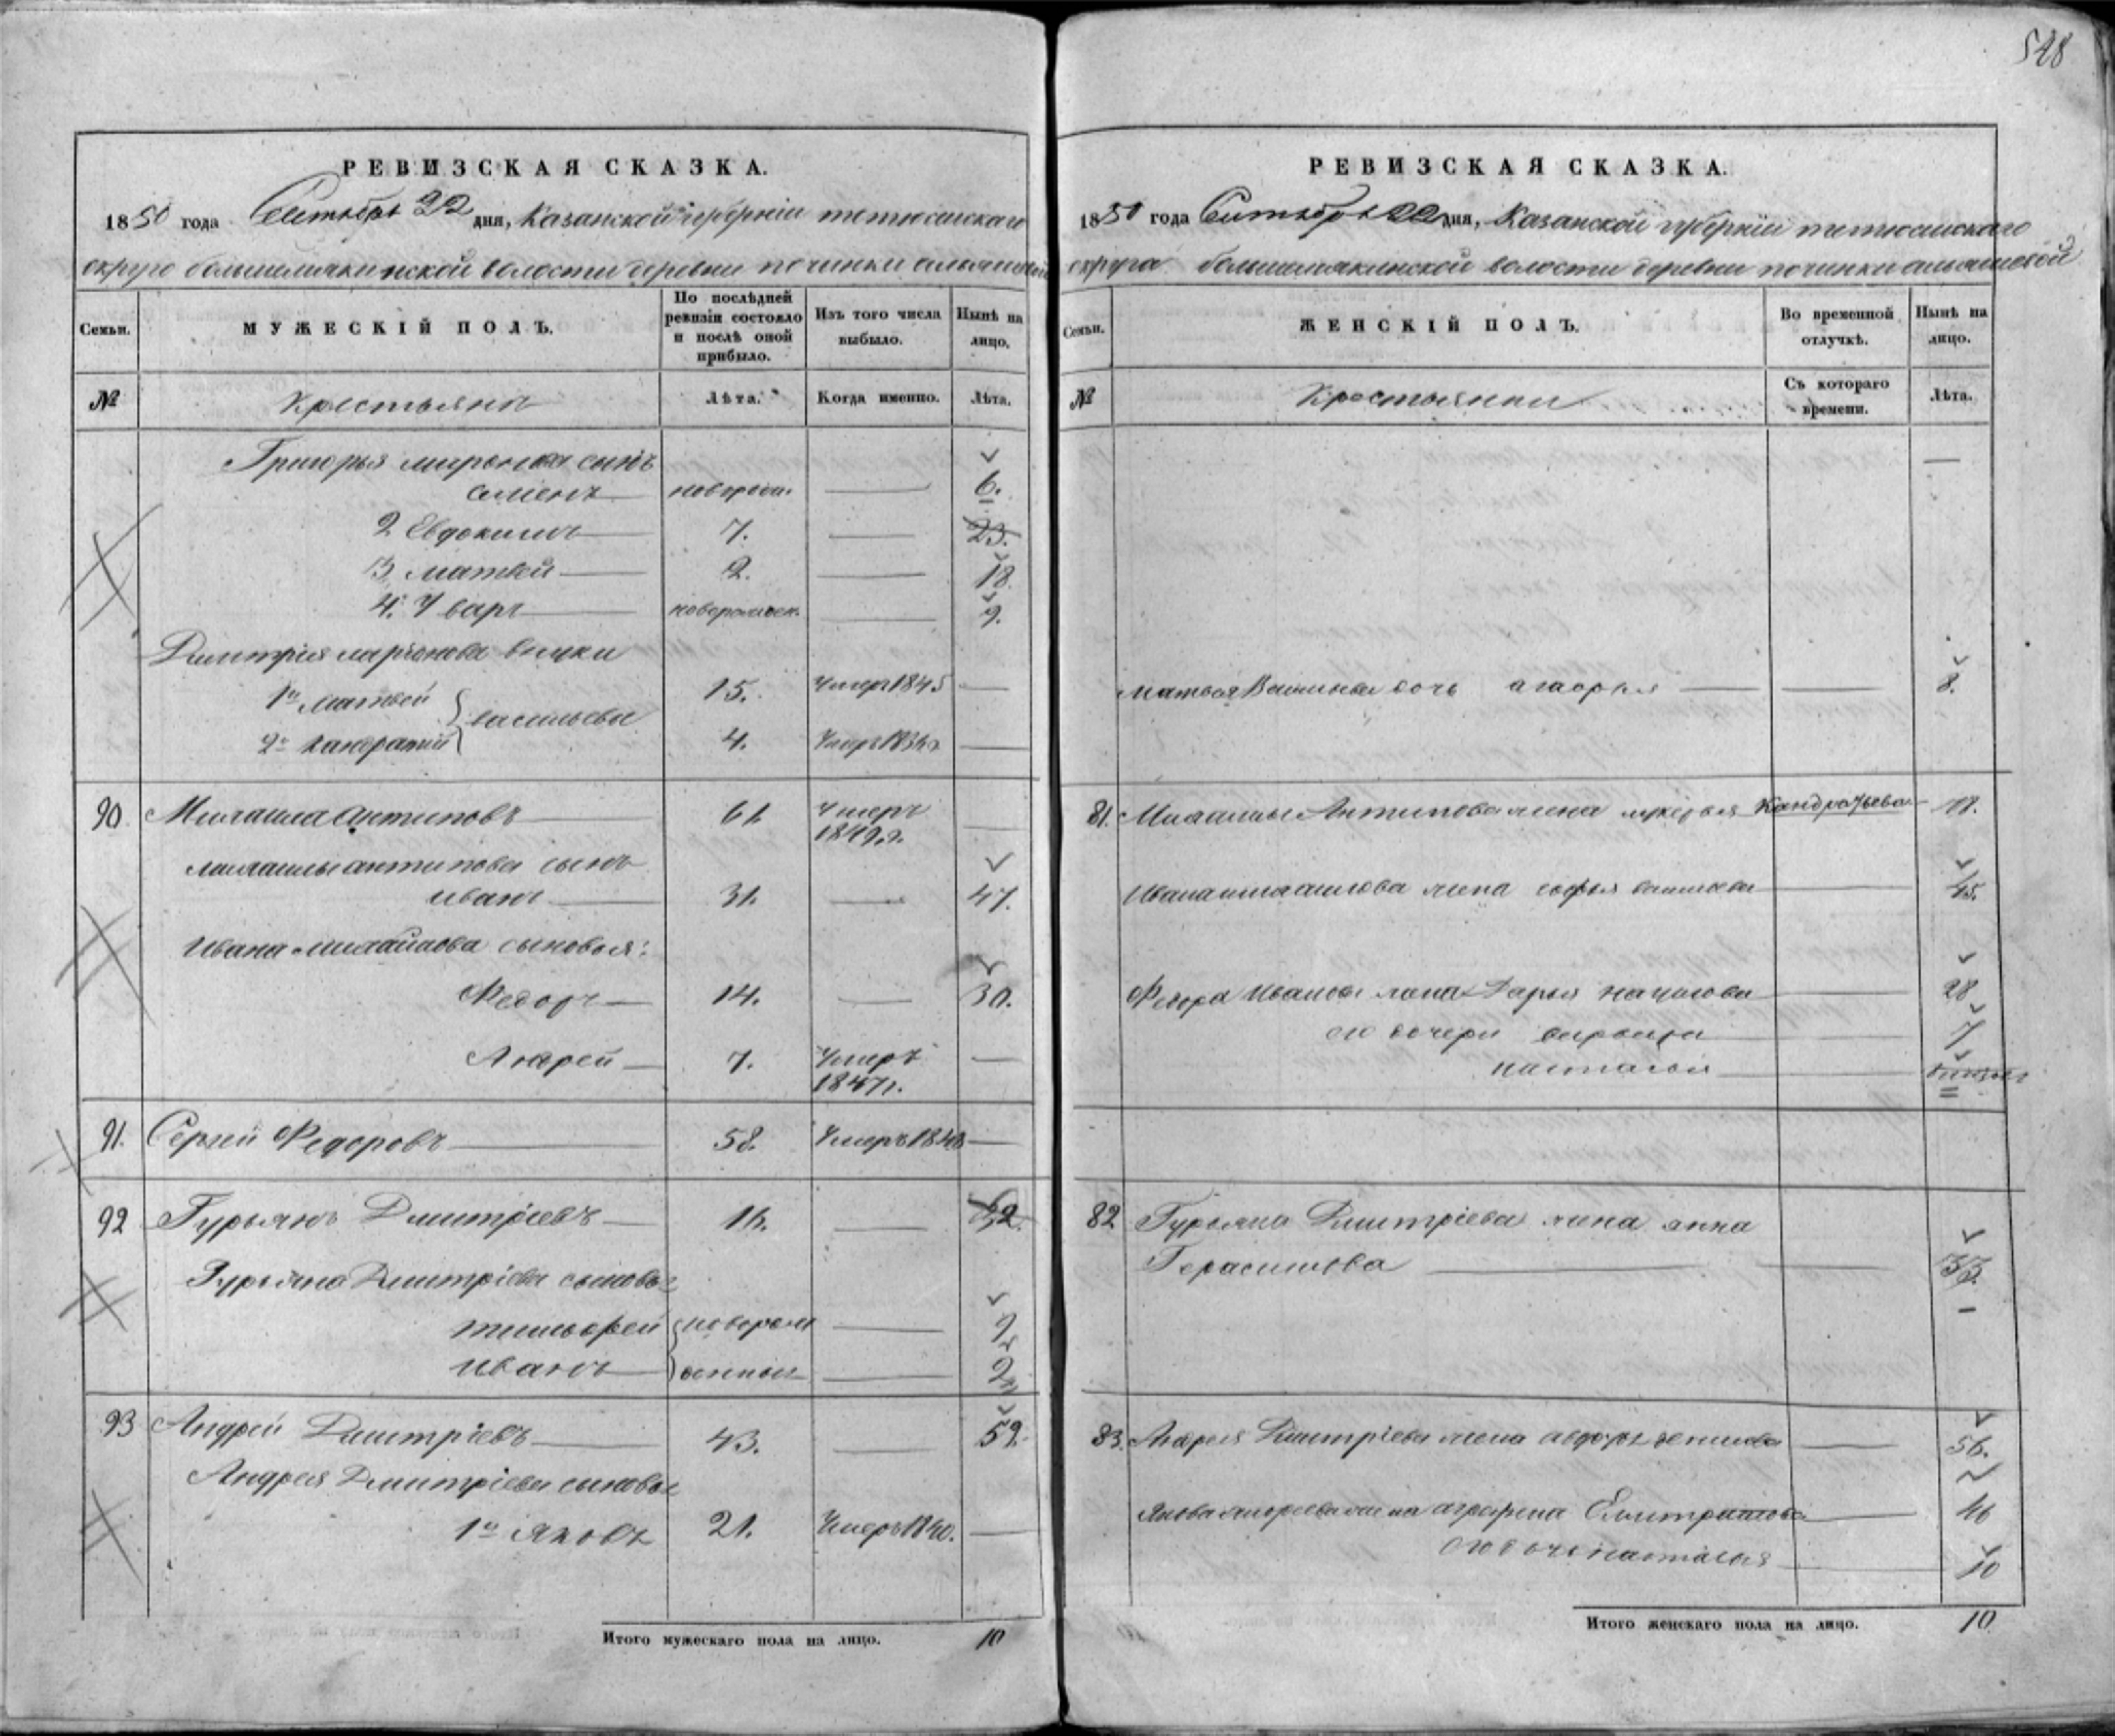 548
РЕВИЗСКАЯ СКАЗКА.
1850 года Сентября 22 дня, Казанской губерніи тетюшскаго
округа большемякинской волости деревни починки
Семьи.
МУЖЕСКІЙ ПОЛЪ.
По послѣдней ревизіи состояло и послѣ оной прибыло.
Изъ того числа выбыло.
Нынѣ на лицо.
№
Крестьяне
Лѣта.
Когда именно.
Лѣта.
Григорья миронова сынъ
семенъ новорож. 6.
2 Евдокимъ 7. 23.
3 матвей 2. 18.
4. Уваръ новорожден. 9.
Дмитрия ларіонова внуки
1й матвей 15. умеръ 1845
васильевы
2й панкратий 4. Умеръ
90 Михаила антиповъ 61. Умеръ 1849 г.
михаилы антипова сынъ
иванъ 31. 47.
Ивана михайлова сыновья:
Федоръ 14. 30.
Андрей 7. Умеръ 1847 г.
91. Сергей Федоровъ 58. Умеръ
92 Гурьянъ Дмитріевъ 16. 32.
Гурьяна Дмитріева сыновья
тимофей новорож 9
иванъ денныи 2
93 Андрей Дмитріевъ 43. 59.
Андрея Дмитріева сыновья
1й Яковъ 21. Умеръ 1840.
Итого мужескаго пола на лицо. 10
РЕВИЗСКАЯ СКАЗКА.
1850 года Сентября 22 дня, Казанской губерніи тетюшскаго
округа большемякинской волости деревни починки
Семьи.
ЖЕНСКІЙ ПОЛЪ.
Во временной отлучкѣ.
Нынѣ на лицо.
№
Крестьянки
Съ котораго времени.
Лѣта.
матвея Васильева дочь агафья 8.
81. Михаилы Антипова жена лукерья Кандратьева
Ивана михаилова жена софья васильева 45.
Федора Иванова жена Дарья 28
его дочери 7
настасья
82 Гурьяна Дмитріева жена анна
Герасимова 33.
83. Андрея Дмитріева жена 56.
Якова андреева жена аграфена 46
его дочь настасья 10
Итого женскаго пола на лицо. 10